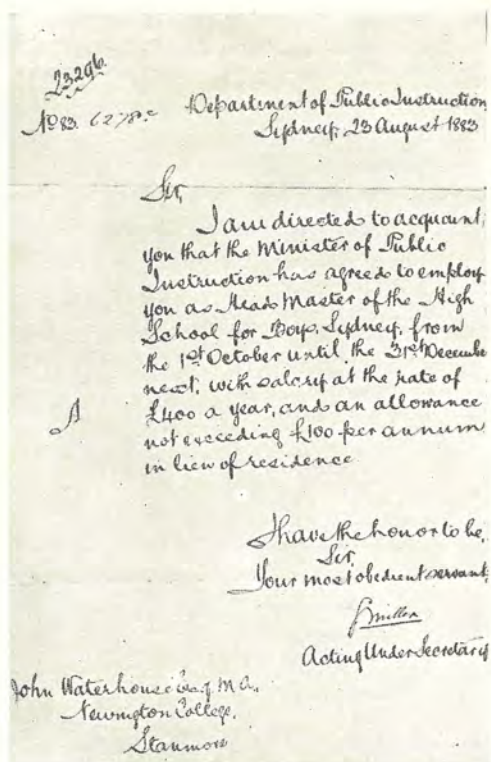 23296
No 83.
Department of Public Instruction
Sydney, 23 August 1883
Sir,
I am directed to acquaint
you that the Minister of Public
Instruction has agreed to employ
you as Head Master of the High
School for Boys, Sydney, from
the 1st October until the 31st December
next, with salary at the rate of
£400 a year, and an allowance
not exceeding £100 per annum
in lieu of residence
I have the honor to be,
Sir,
Your most obedient servant,
Miller
Acting Under Secretary
John Waterhouse Esq. M.A.,
Newington College,
Stanmore